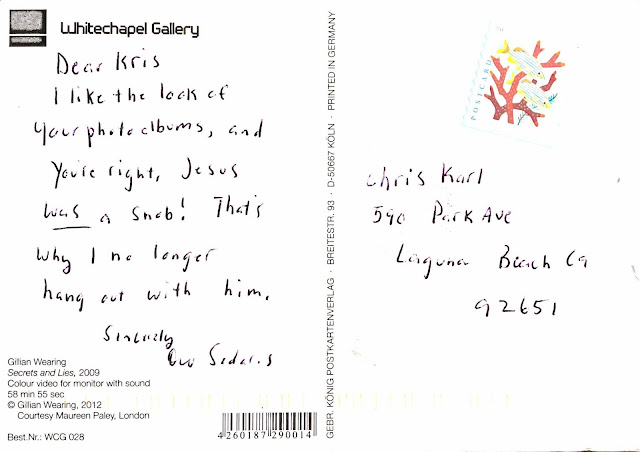 Whitechapel Gallery
Dear Kris
I like the look of
your photo albums, and
you're right, Jesus
was a snob! That's
why I no longer
hang out with him.
Sincerely
Gillian Wearing
Secrets and Lies, 2009
Colour video for monitor with sound
58 min 55 sec
© Gillian Wearing, 2012
Courtesy Maureen Paley, London
Best.Nr.: WCG 028
4260187290014
GEBR. KÖNIG POSTKARTENVERLAG · BREITESTR. 93 · D-50667 KÖLN · PRINTED IN GERMANY
POSTCARD
Chris Karl
590 Park Ave
Laguna Beach Ca
92651